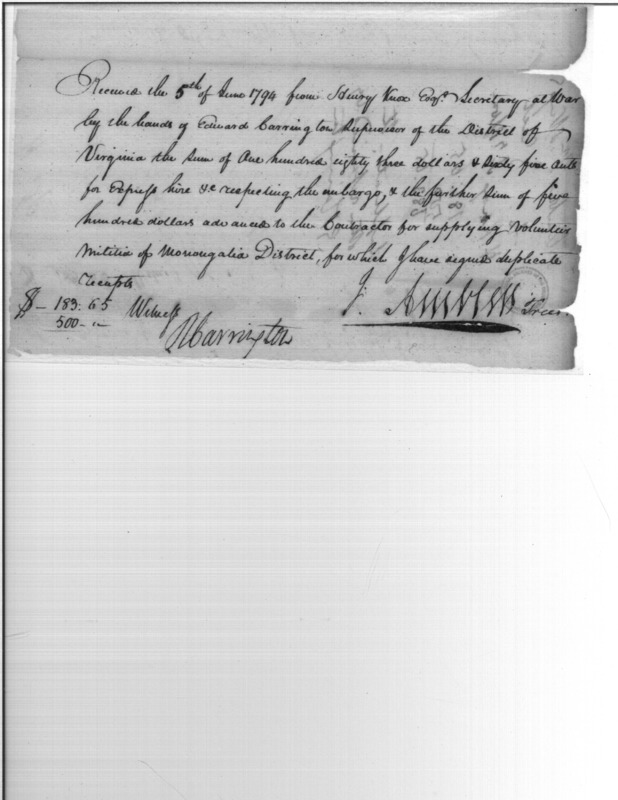 Received the 5th of June 1794 from Henry Knox Esqr. Secretary at War
by the hands of Edward Carrington Supervisor of the District of
Virginia the sum of One hundred eighty three dollars & sixty five Cents
for Express hire &c respecting the embargo, & the further sum of five
hundred dollars advanced to the Contractor for supplying Volunteer
Militia of Monongalia District, for which I have signed duplicate
receipts
$ - 183.65 Witness J. Ambler Treas.
500 - "
Carrington